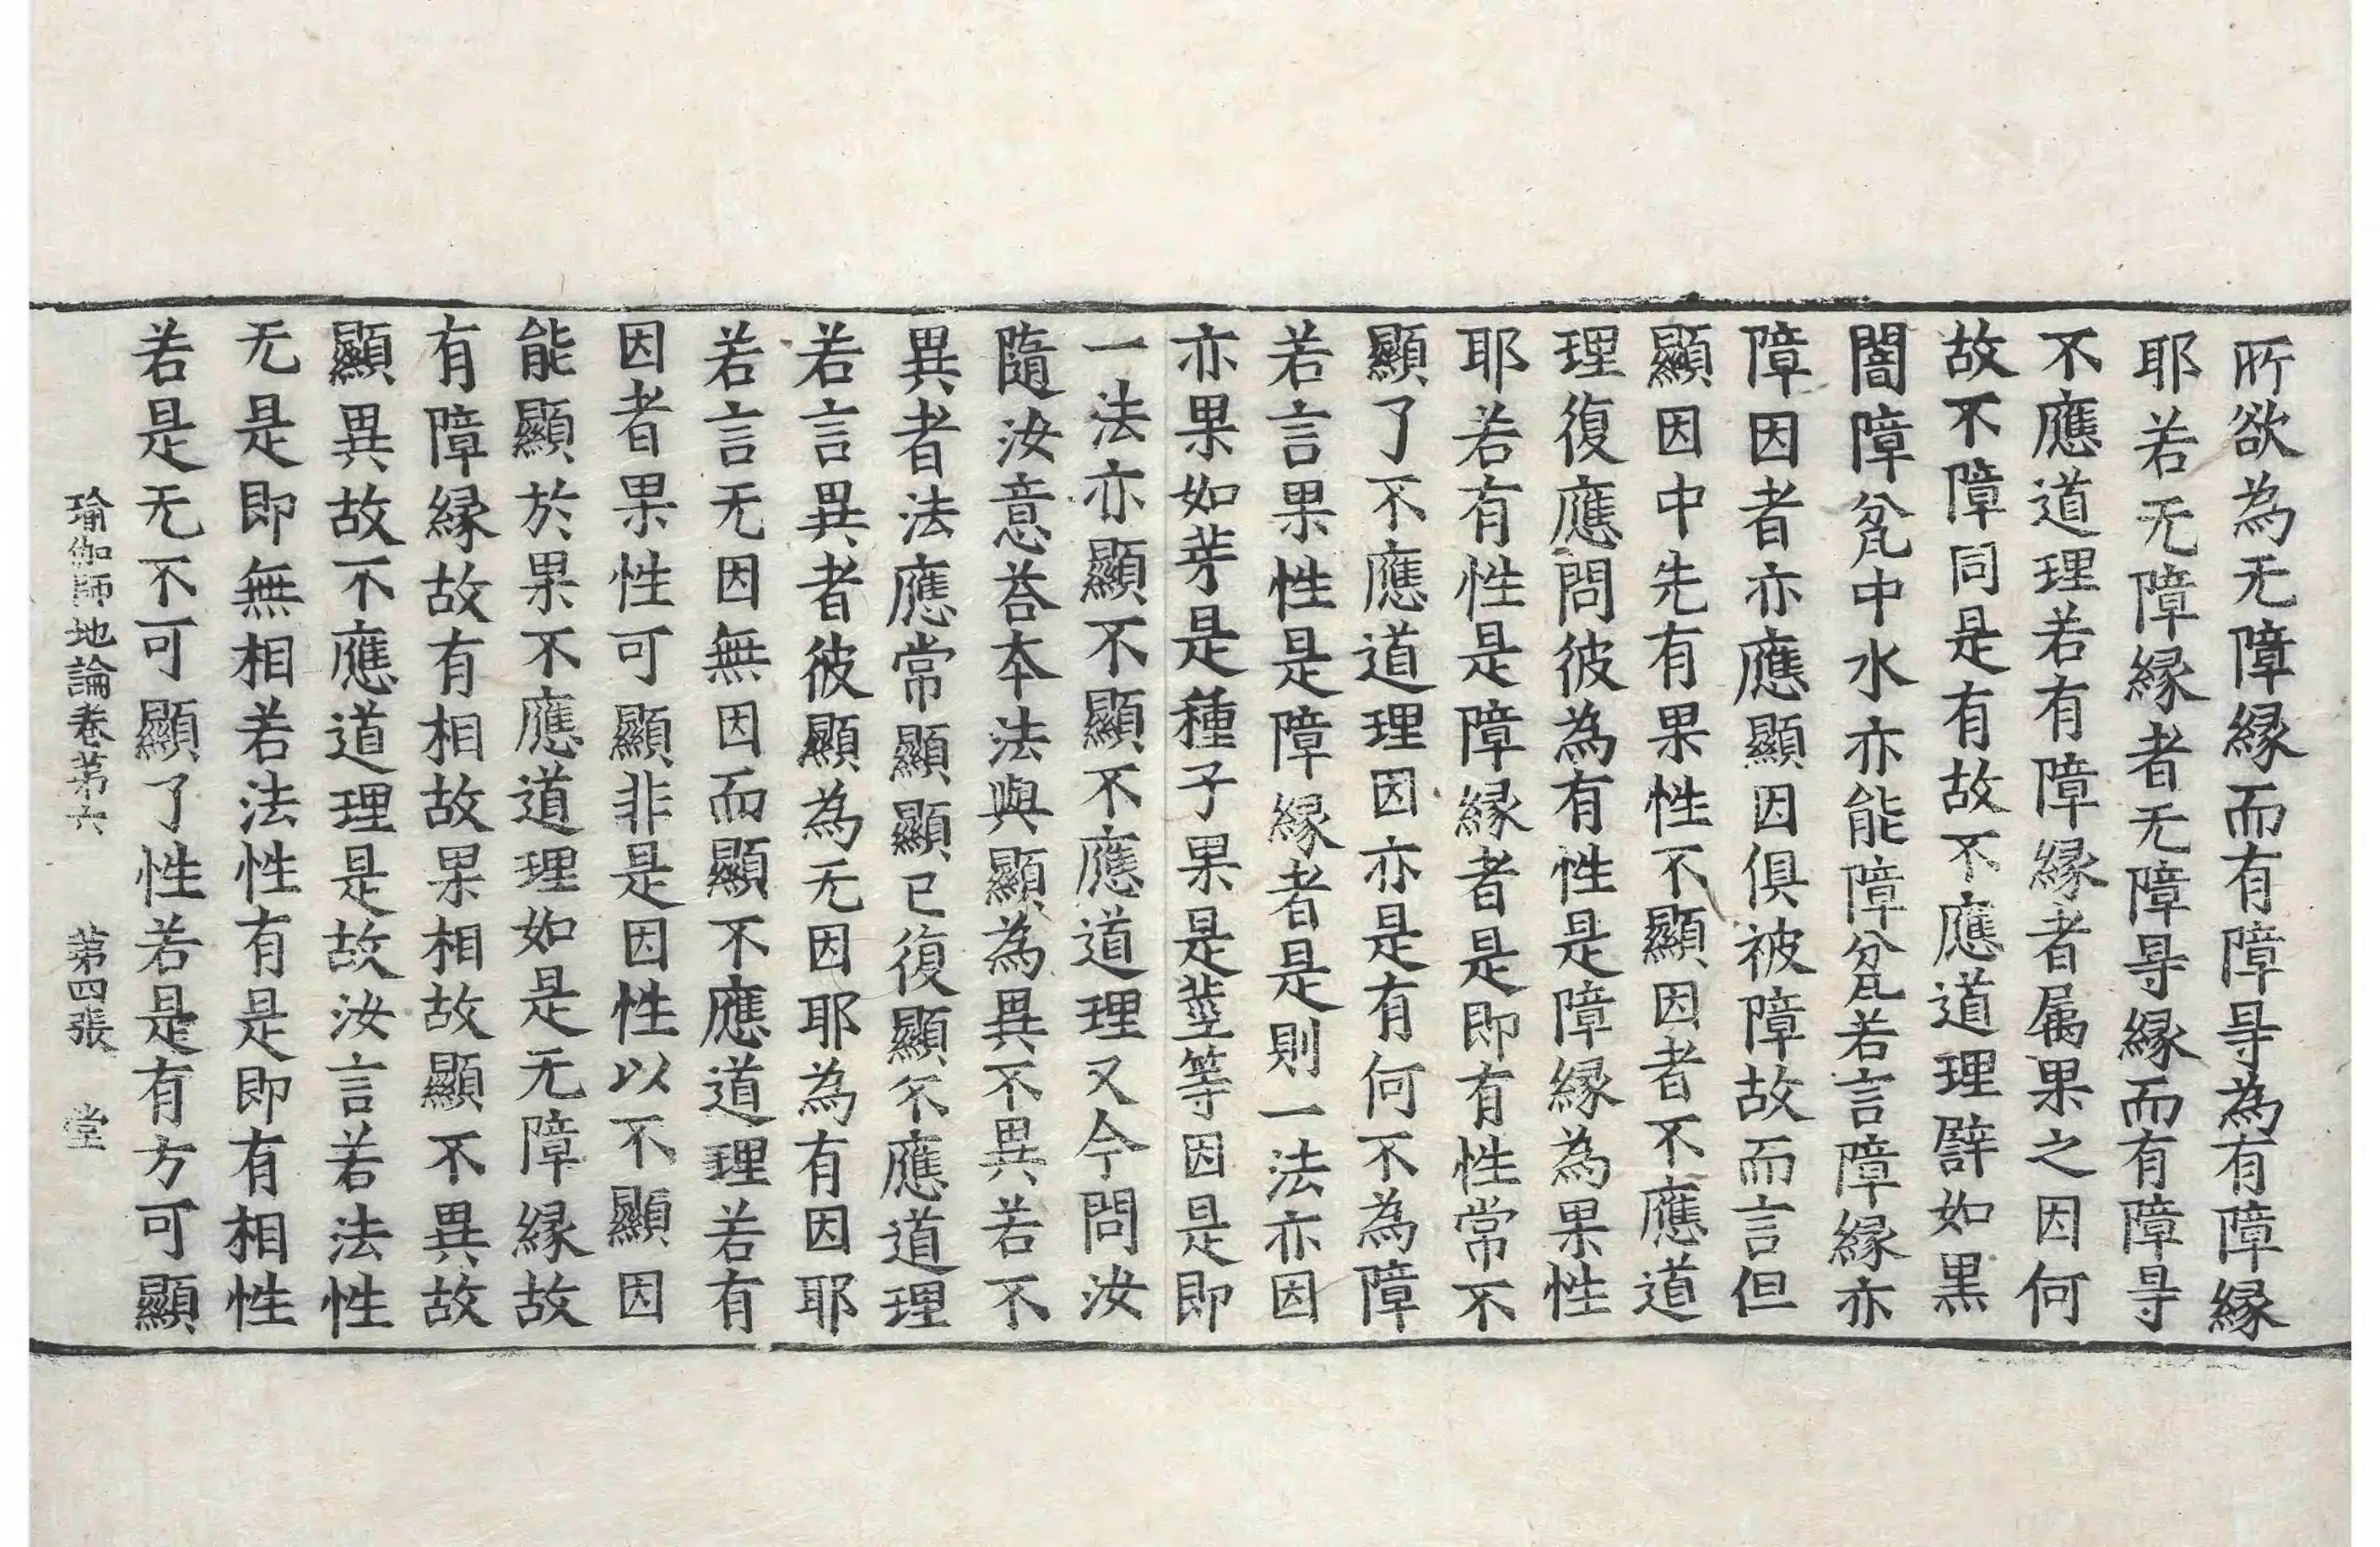 所欲為无障縁而有障㝵為有障縁
耶若无障縁者无障㝵縁而有障㝵
不應道理若有障縁者属果之因何
故不障同是有故不應道理譬如黒
闇障瓫中水亦能障瓫若言障縁亦
障因者亦應顯因俱被障故而言但
顯因中先有果性不顯因者不應道
理復應問彼為有性是障縁為果性
耶若有性是障縁者是即有性常不
顯了不應道理因亦是有何不為障
若言果性是障縁者是則一法亦因
亦果如芽是種子果是莖等因是即
一法亦顯不顯不應道理又今問汝
隨汝意荅本法與顯為異不異若不
異者法應常顯顯已復顯不應道理
若言異者彼顯為无因耶為有因耶
若言无因無因而顯不應道理若有
因者果性可顯非是因性以不顯因
能顯於果不應道理如是无障縁故
有障縁故有相故果相故顯不異故
顯異故不應道理是故汝言若法性
无是即無相若法性有是即有相性
若是无不可顯了性若是有方可顯
瑜伽師地論卷第六　第四張　堂